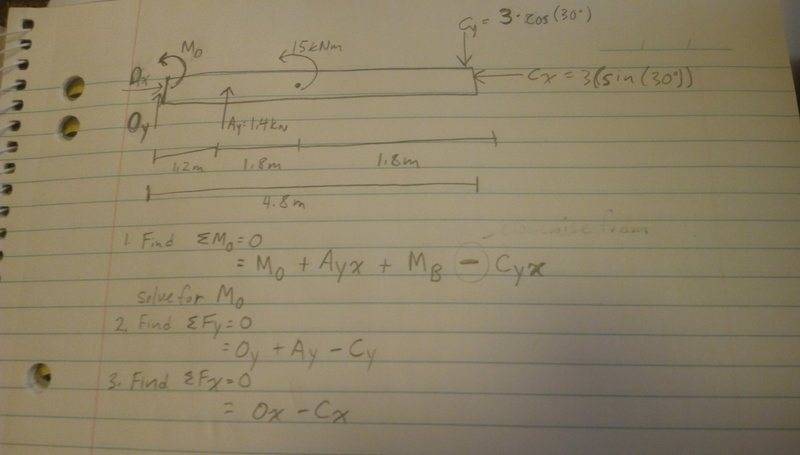 Cy = 3·cos(30°)
Mo
15kNm
Ox
Cx = 3(sin(30°))
Oy
Ay=1.4kN
1.2m
1.8m
1.8m
4.8m
1. Find ΣMo=0
= Mo + Ayx + MB - Cyx
solve for Mo
2. Find ΣFy=0
= Oy + Ay - Cy
3. Find ΣFx=0
= Ox - Cx